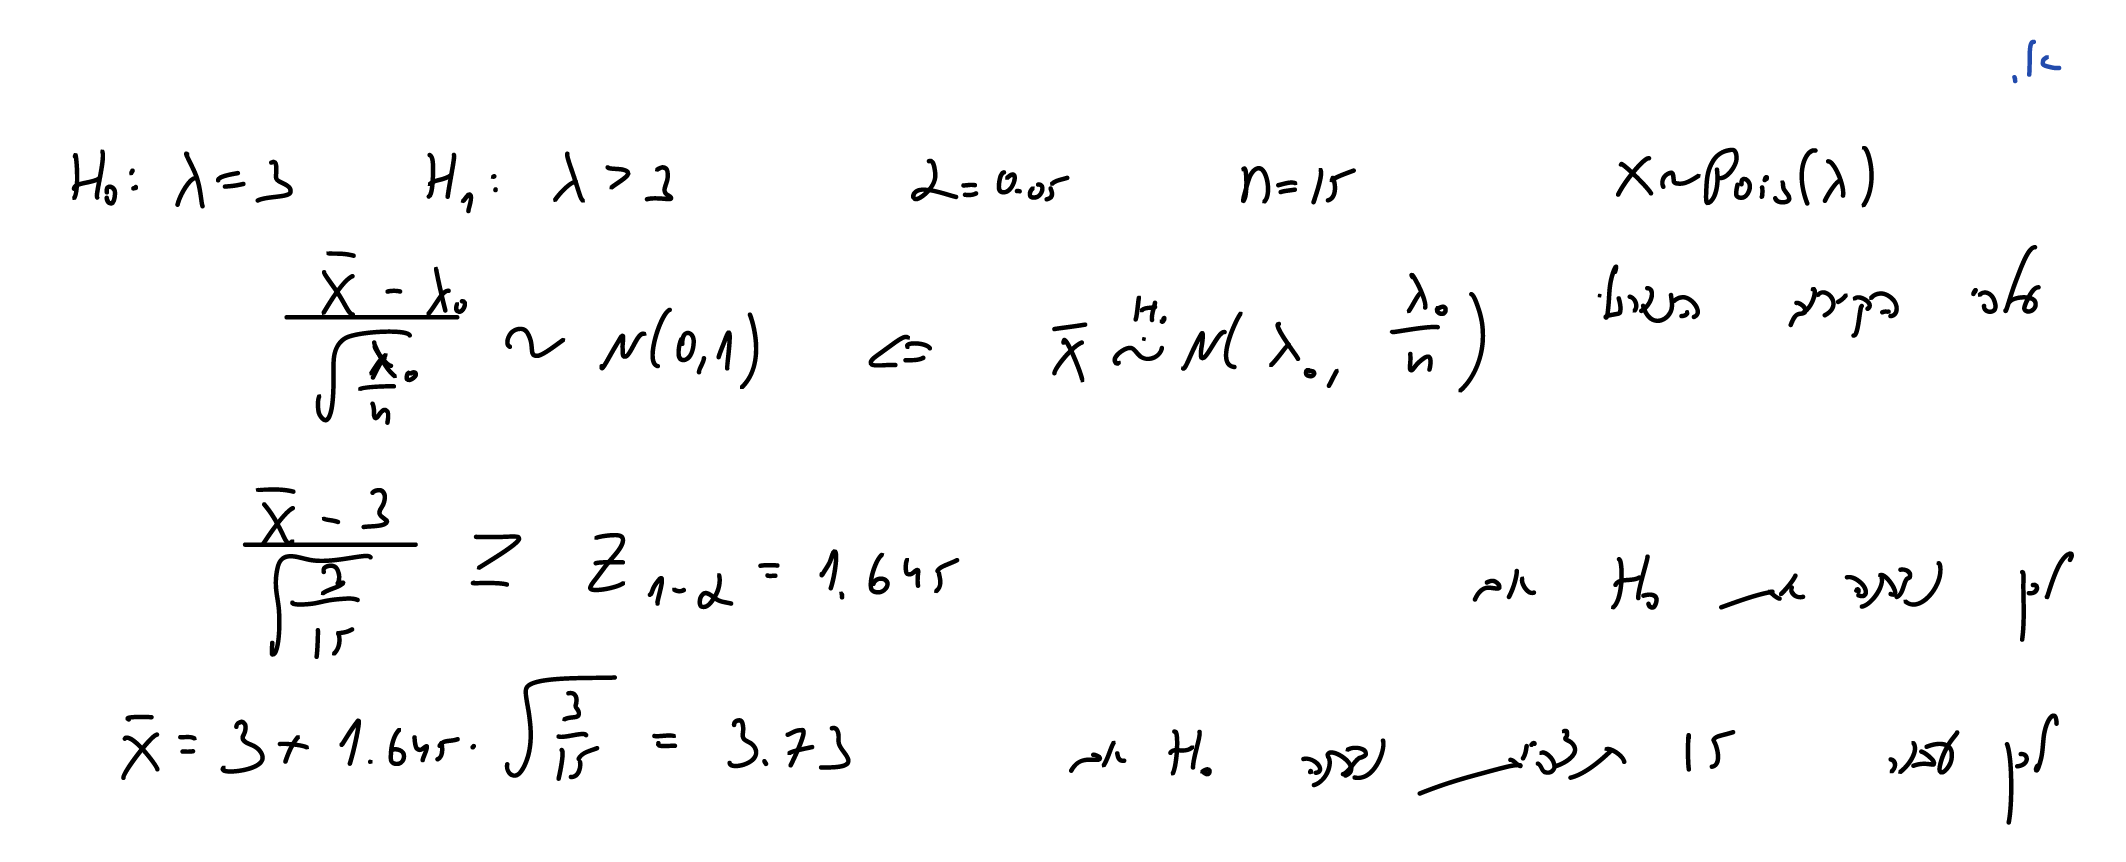 א.
H₀: λ = 3   H₁: λ > 3   α = 0.05   n = 15   X ~ Pois(λ)
על פי הקירוב הנורמלי   X̄ ~̇^{H₀} N(λ₀, λ₀/n)   <=   (X̄ - λ₀)/√(λ₀/n) ~ N(0,1)
לכן נדחה את H₀ אם   (X̄ - 3)/√(3/15) ≥ Z_{1-α} = 1.645
לכן עבור 15 תצפיות נדחה H₀ אם   X̄ = 3 + 1.645 · √(3/15) = 3.73